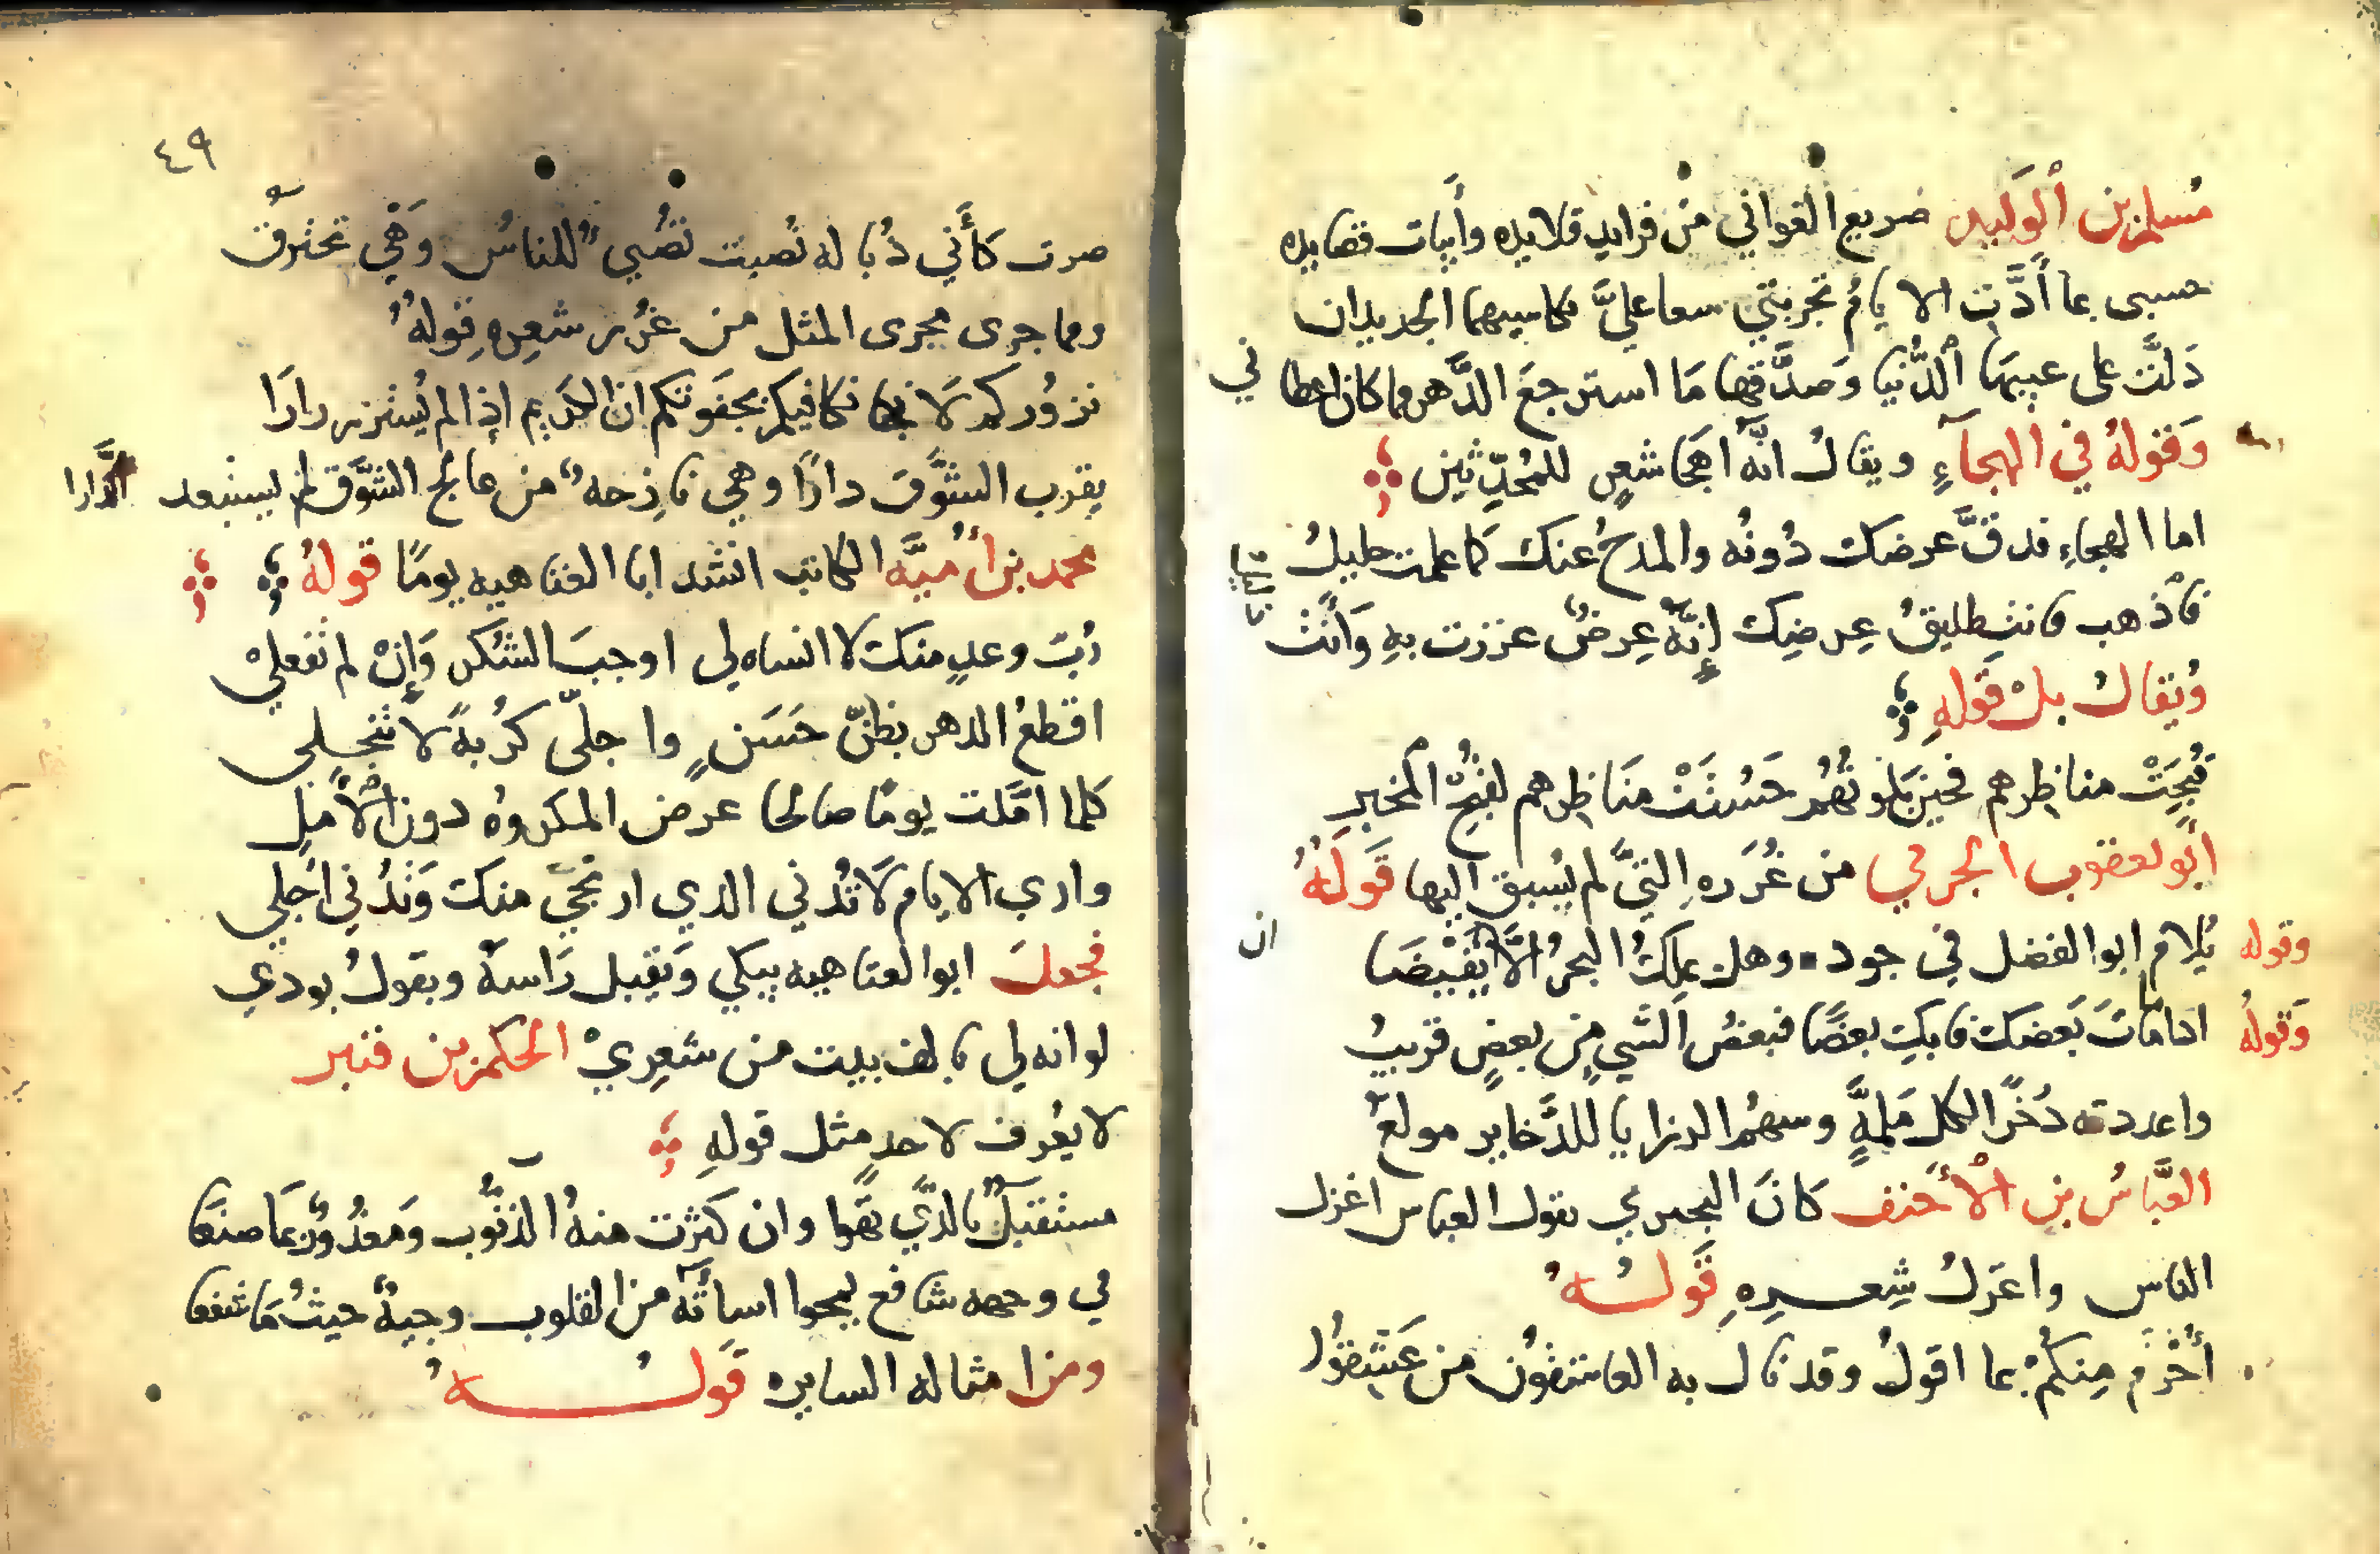 مُسلم بن ٱلوَليد صريع الغواني من فرايد قلايده وأبيات قصايده
حسبى بما أدَّت الايامُ تجربتي سعا عليَّ بكاسيهما الجديدان
دَلَّت على عيبها ٱلدُّنيا وَصدَّقها مَا استرجعَ الدَّهر مما كان اعطاني
وَقولهُ في الهجآءِ ويقالُ انَّه اَهجَا شعرٍ للمُحدِّثين
اما الهجاء فدقَّ عرضك دُونُه والمدحُ عنك كما علمت جليلُ
فاْذهب فانت طليقُ عِرضِك إِنَّه عِرضٌ عززت بهِ وَأَنْتَ ذليل
وُيقالُ بلْ قَولهِ
قبُحَتْ مناظِرهم فحين بلوتُهُمْ حَسُنَتْ مَنَاظِرهم لقبْحِ المخبرِ
ابو يعقوب الخرمي من غُرَره اِلتَّي لم يُسبق اليها قَولَهُ
وقوله يُلام ابو الفضل في جوده وهل يملكُ البحرُ الَّا يَفيْضَا ان
وَقولهُ اذا ما ماتَ بَعضك فابكِ بعضًا فبعضُ اَلشَيِ من بعضٍ قريبُ
واعددته دُخرًا لكل مَلِمَّةٍ وسهمُ الرزايا للدَّخاير مولعُ
العبَّاسُ بن الْأَحنف كانَ البحتري يقول العباس اغزل
الناس واغزلُ شِعــرِهِ قَولــهُ
أُحْرَمُ مِنكُمْ بما اقولُ وقد نال به العاشقُون من عَشِقُوا
٤٩
صرت كأَنّي ذُبالة نُصبت تضُيُ للناسُ وَهْيَ تحترقُ
ومما جرى مجرى المثل من غُرر شعِرهِ قولهُ
نزوُركم لَا نكافيكم بجفوتكم ان الكريم اذا لم يُستزر زارَا
يقرب الشَّوقَ دارًا وهي نازِحه من عالج الشَّوق لم يستبعد الدَّارا
محمد بن أُميَّه الكاتب انشد ابا العتاهيه يومًا قولهُ
رُبّ وعدٍ منك لا انساه لي اوجبَ الشكر وَإِنْ لم تفعليْ
اقطعُ الدهر بظنّ حَسَنٍ واجلّى كُربةً لا تنجلي
كلما امَّلت يومًا صالحا عرض المكروهُ دون الْأَملِ
وارى الايام لَا تُدني الدي ارتجيّ منك وَتُدْني اَجلي
فجعلَ ابو العتاهيه يبكي وَيقبل رَاسهُ ويقولُ بودي
لو انه لي بالف بيت من شعِريْ الحكم بن قنبر
لا يعُرف لاحدٍ مثل قولهِ
مستقبَلٌ بالذَّي يَهوا وان كثرت منهُ الذنوُب وَمعذُورٌ بمَا صنَعا
في وجهه شافع يمحوا اسائَه من القلوب وجيهٌ حيثُ مَا شفعا
ومن امثاله السايره قَولــــهُ